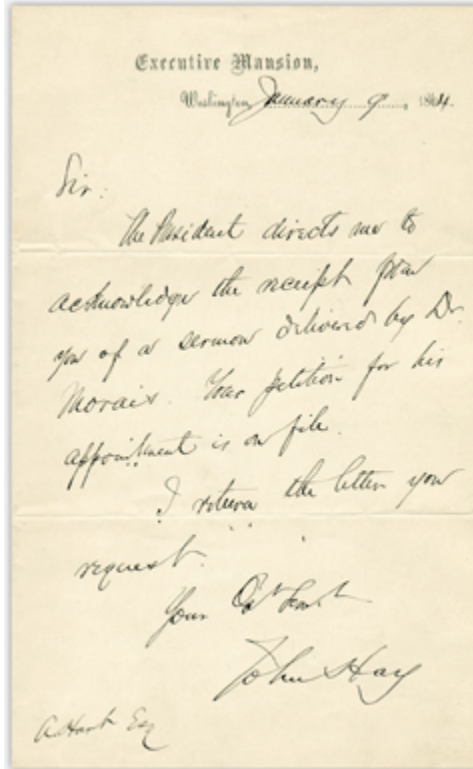 Executive Mansion,
Washington, January 9, 1864.
Sir:
The President directs me to
acknowledge the receipt from
you of a sermon delivered by Dr.
Morais. Your petition for his
appointment is on file.
I return the letter you
request.
Your Obt Servt
John Hay
A Hart Esq